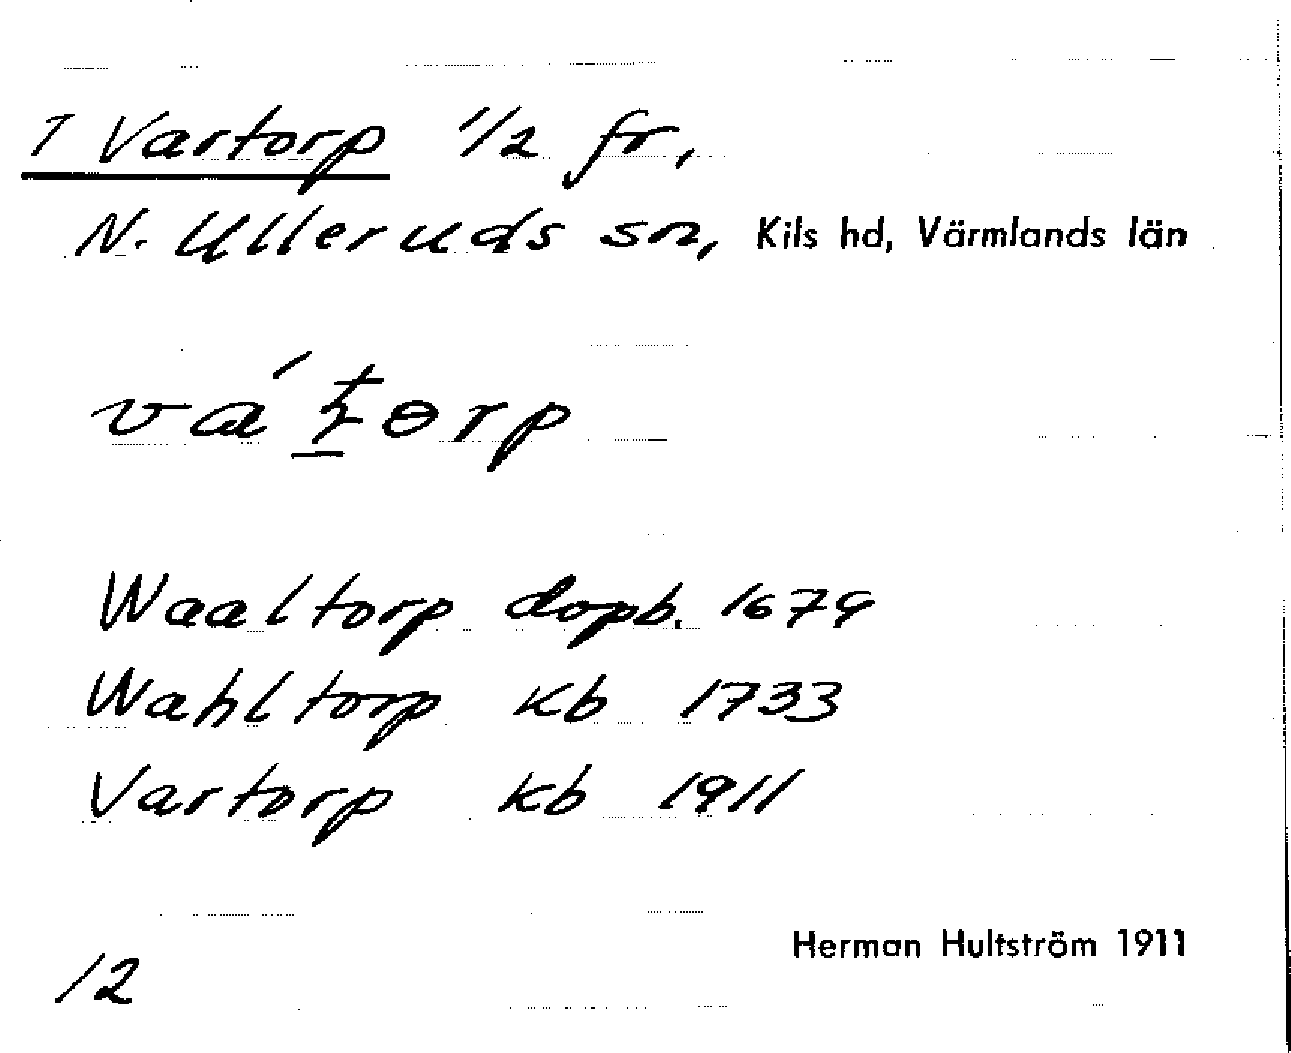 1 Vartorp 1/2 fr,
N. Ulleruds sn, Kils hd, Värmlands län
Waaltorp dopb. 1679
Wahltorp kb 1733
Vartorp kb 1911
Herman Hultström 1911
12